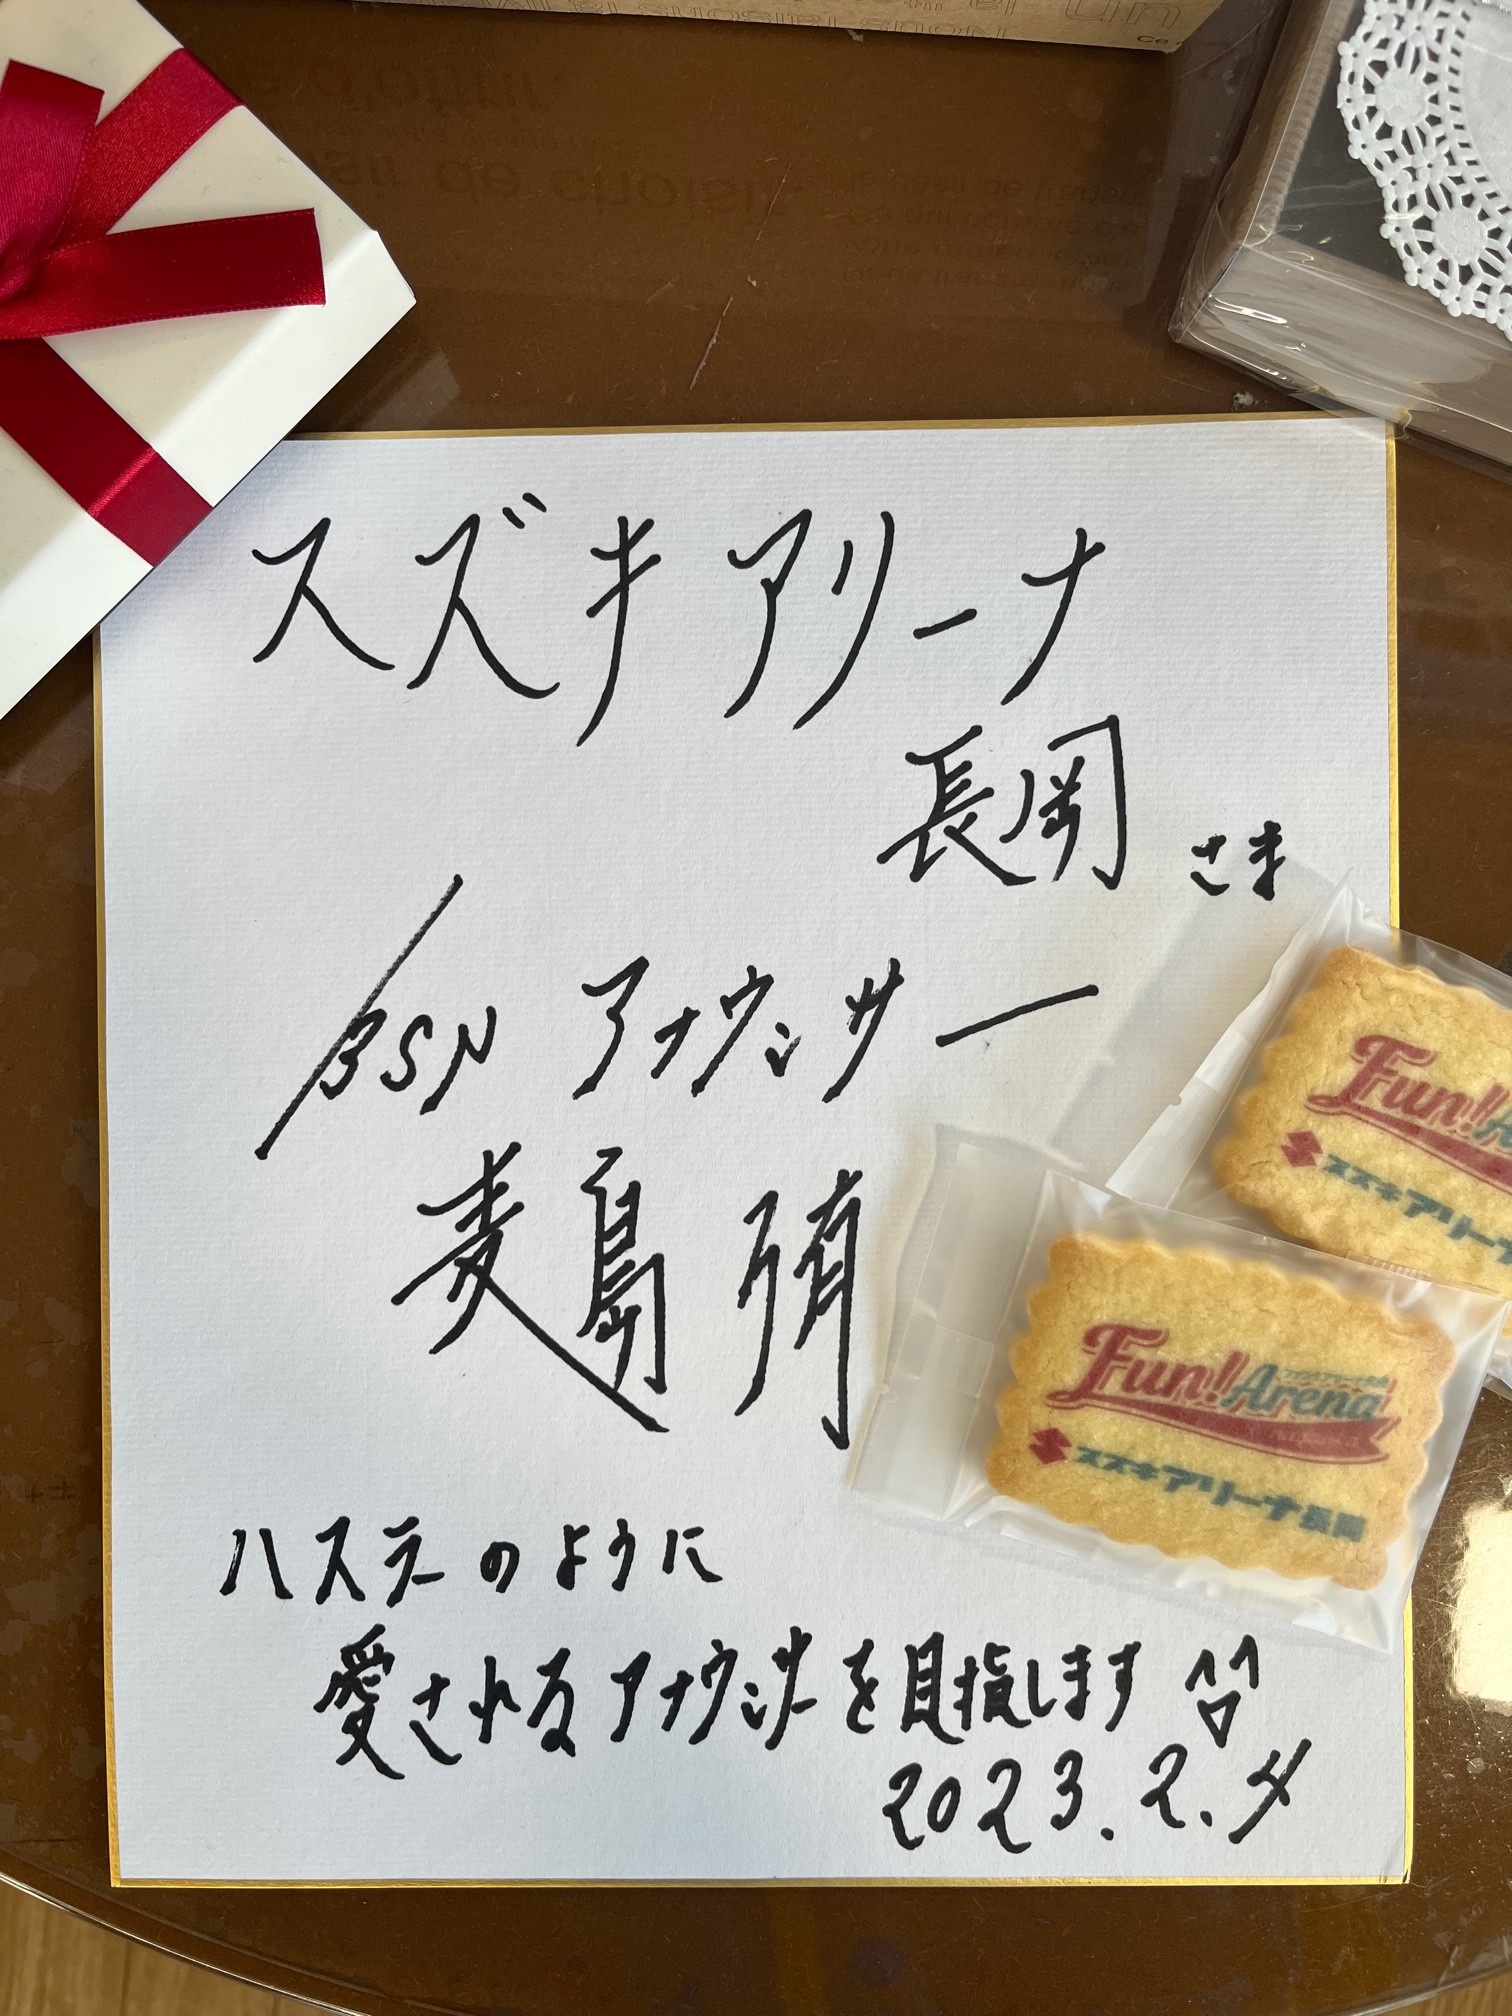 スズキアリーナ
長岡 さま
BSN アナウンサー
麦島 侑
ハスラーのように
愛されるアナウンサーを目指します
2023.2.4
Fun!!Arena
スズキアリーナ長岡
Fun!!A
スズキアリーナ